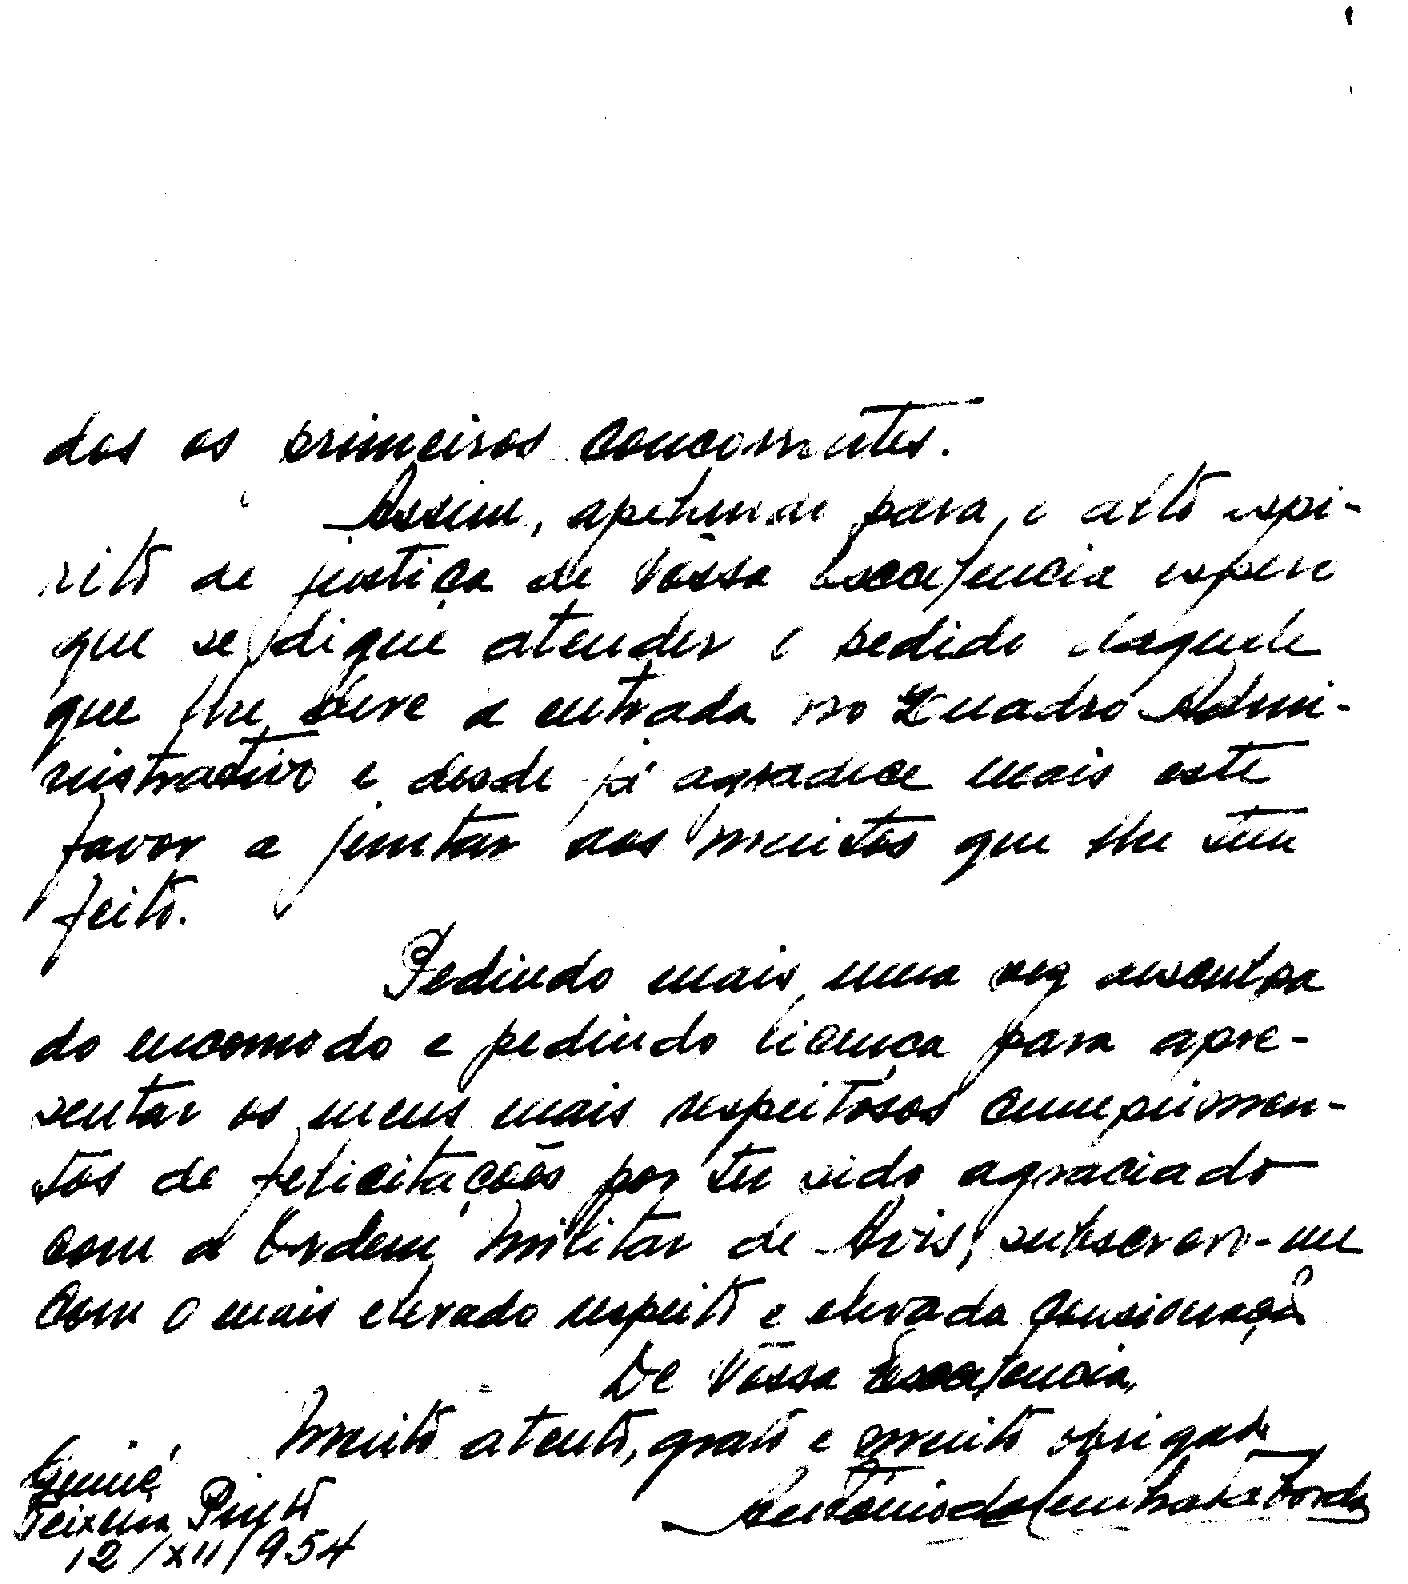 dos os primeiros concorrentes.
Assim, apelando para o alto espi-
rito de justiça de Vóssa Excelencia espero
que se digne atender o pedido daquele
que lhe deve a entrada no Quadro Admi-
nistrativo e desde já agradece mais este
favor a juntar aos muitos que lhe tem
feito.
Pedindo mais uma vez desculpa
do encomodo e pedindo licença para apre-
sentar os meus mais respeitósos cumprimen-
tos de felicitações por ter sido agraciado
com a Ordem Militar de Avis, subscrevo-me
Com o mais elevado respeito e elevada consideração
De Vóssa Excelencia,
Muito atento, grato e muito obrigado
António da Cunha Taborda
Guiné
Teixeira Pinto
12/XII/954